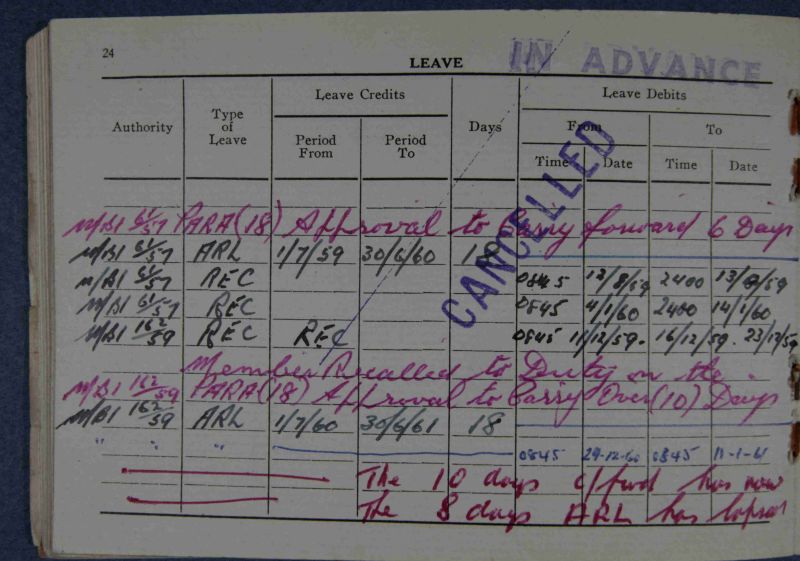 24
LEAVE
IN ADVANCE
Authority
Type of Leave
Leave Credits
Period From
Period To
Days
Leave Debits
From
To
Time
Date
Time
Date
CANCELLED
M/BI 61/57 PARA(18) Approval to Carry forward 6 Days
M/BI 61/57 ARL 1/7/59 30/6/60 18
M/BI 61/57 REC 0845 13/8/59 2400 13/8/59
M/BI 61/57 REC 0845 4/1/60 2400 14/1/60
M/BI 162/59 REC REC 0845 11/12/59. 16/12/59. 23/12/59
Member Recalled to Duty on the
M/BI 162/59 PARA(18) Approval to Carry Over (10) Days
M/BI 162/59 ARL 1/7/60 30/6/61 18
" " " 0845 29-12-60 0845 11-1-61
The 10 days c/fwd has now
The 8 days ARL has lapsed